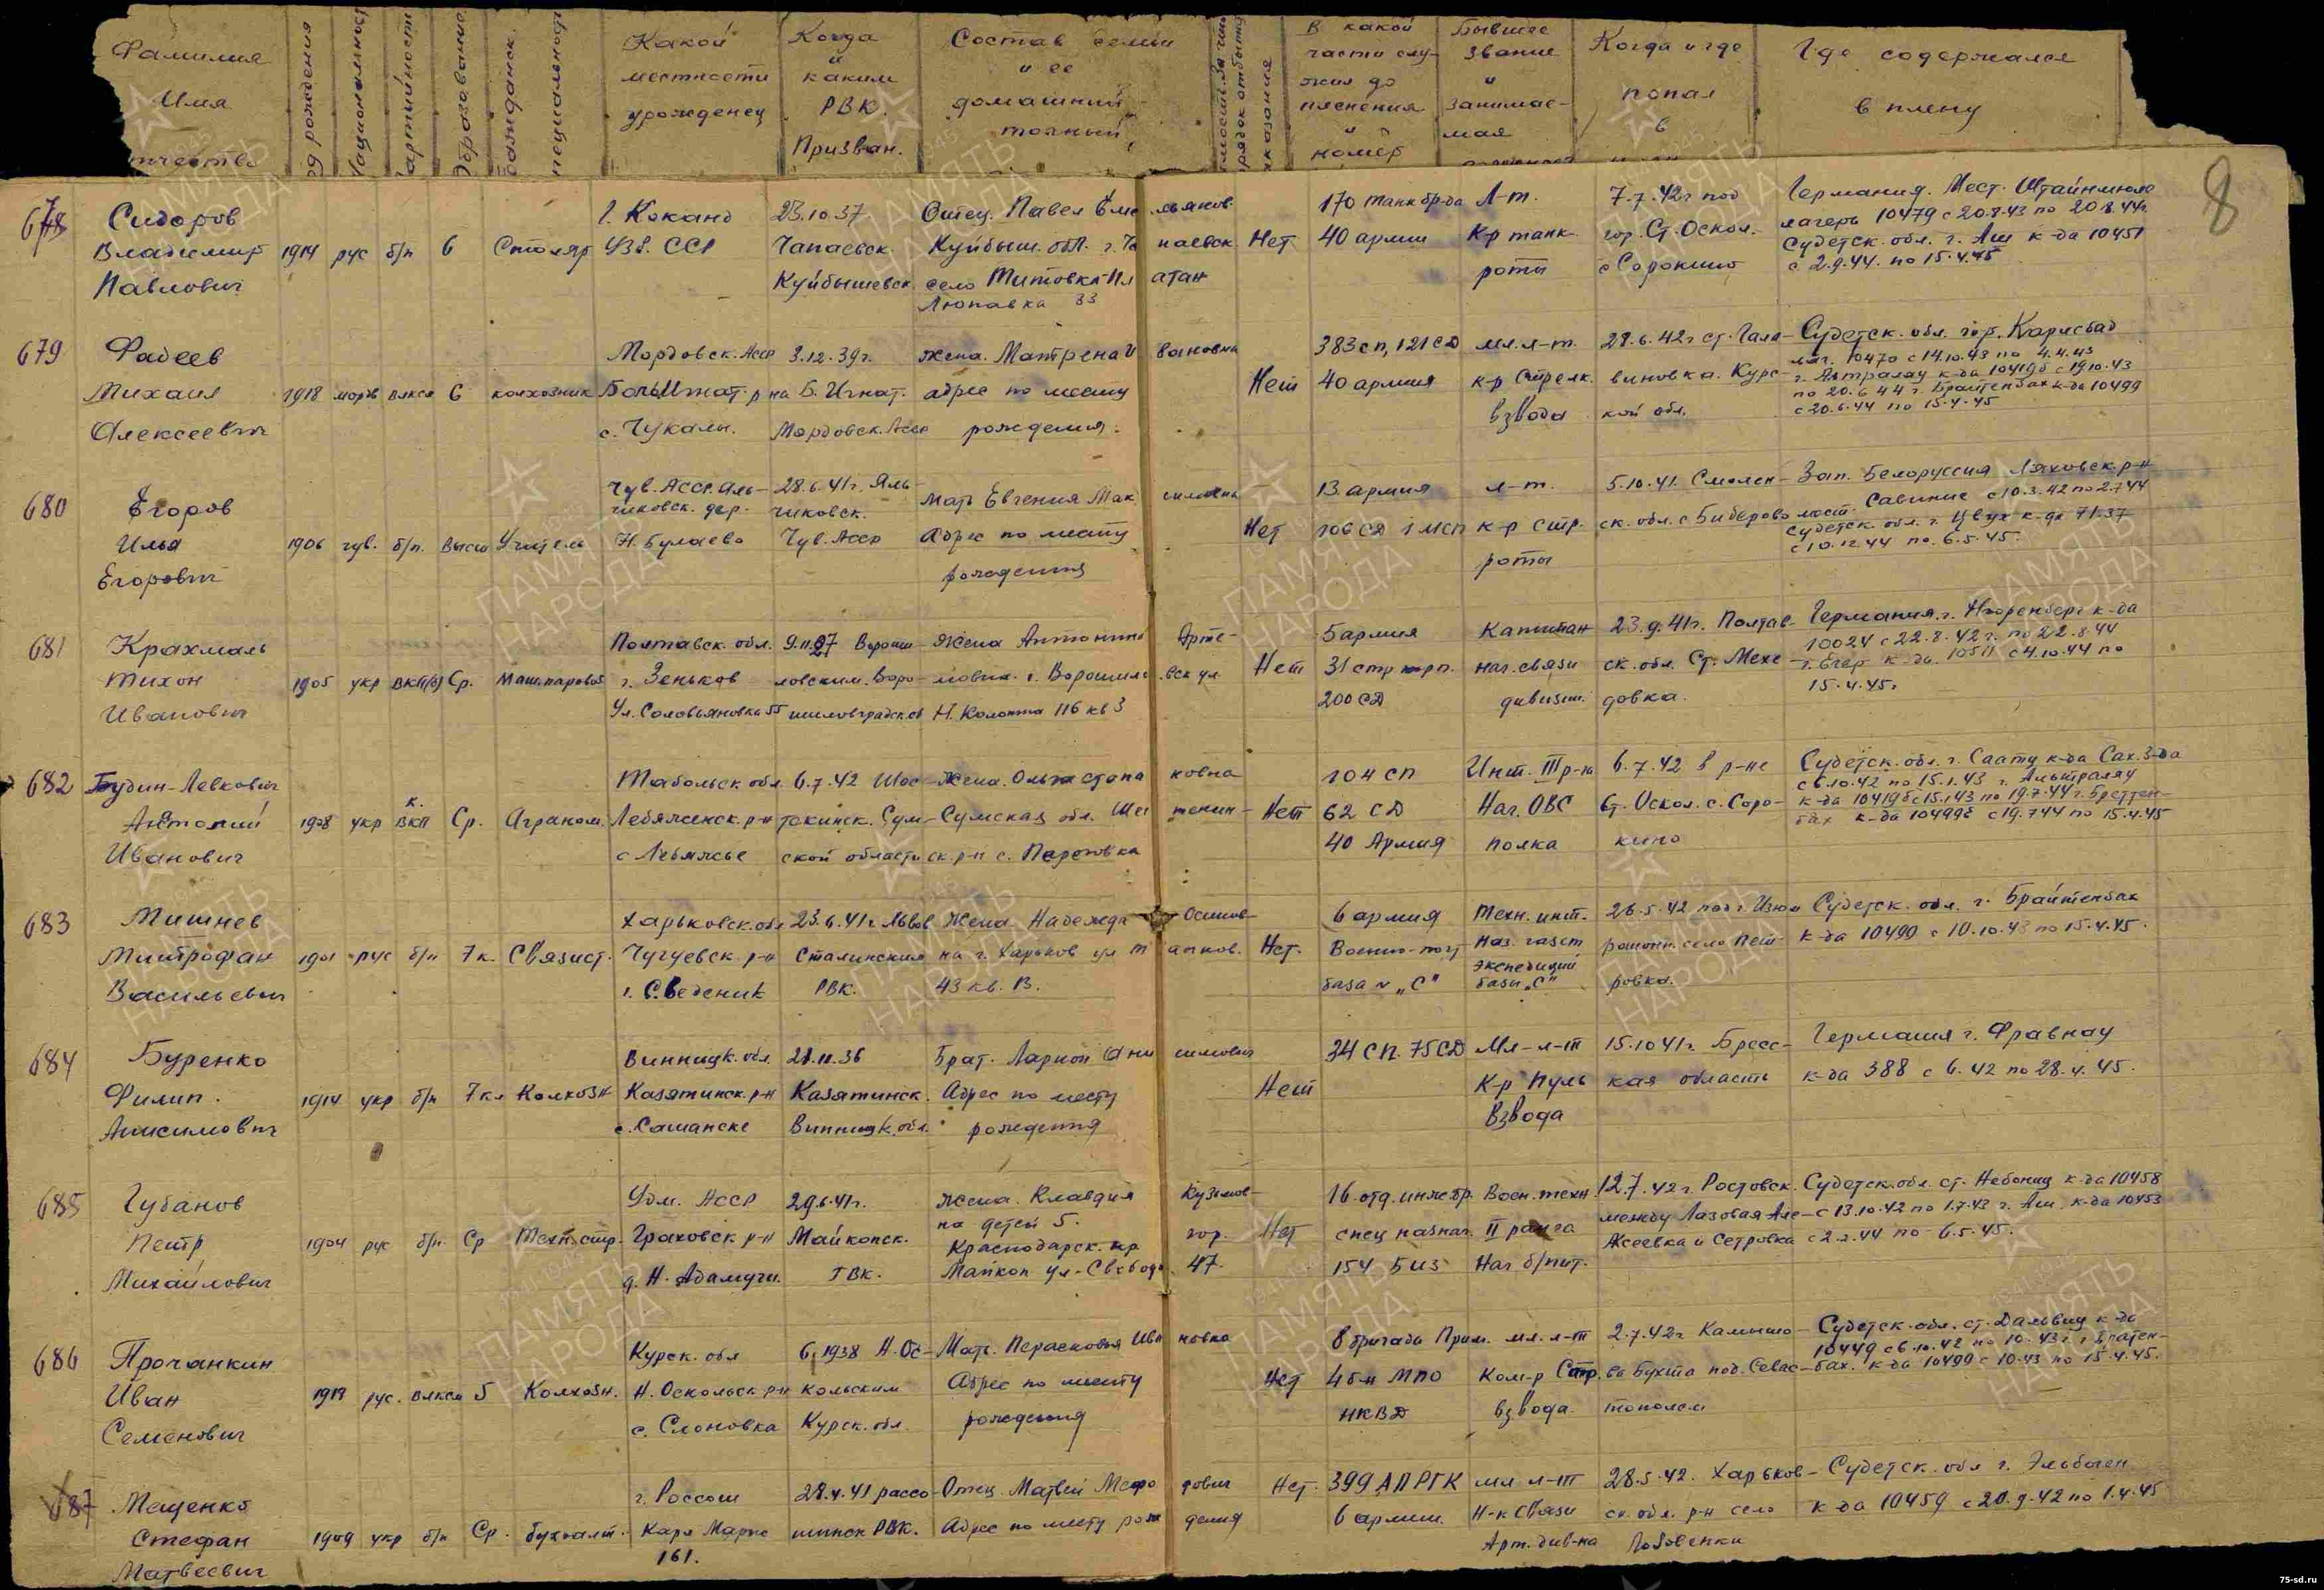 Фамилия
Имя
Год рождения
Национальность
Партийность
Образование
Какой
местности
уроженец
Когда
и
каким
РВК.
Призван.
Состав семьи
и ее
домашний
точный
В какой
части слу-
жил до
пленения
и
номер
Бывшее
звание
и
занимае-
мая
Когда и где
попал
в
Где содержался
в плену
8
678 Сидоров
Владимир
Павлович
1914 рус б/п 6 Столяр
г. Коканд
Узб. ССР
23.10.37.
Чапаевск.
Куйбышевск.
Отец. Павел Емельянов
Куйбыш. обл. г. Чапаевск.
село Титовка
33
Нет
170 танк бр-да
40 армии
Л-т.
К-р танк.
роты
7.7.42г под
гор. Ст. Оскол.
с Сорокино
Германия. Мест.
лагерь 10479 с 20.8.43 по 20.8.44г.
Судетск. обл. г. Аш к-да 10451
с 2.9.44. по 15.4.45
679 Фадеев
Михаил
Алексеевич
1918 морд влксм 6 колхозник
Мордовск. Асср
БольИгнат. р-на
с. Чукалы.
3.12.39г.
Б. Игнат.
Мордовск. Асср
жена. Матрена Ивановна
адрес по месту
рождения.
Нет
383 сп, 121 сд
40 армия
мл. л-т.
к-р Стрелк.
взвода
28.6.42г ст.
виновка. Курс-
кой обл.
Судетск. обл. гор. Карлсбад
лаг. 10470 с 14.10.43 по 4.4.43
к-да 10419б с 19.10.43
по 20.6.44 г. Брайтенбах к-да 10499
с 20.6.44 по 15.4.45
680 Егоров
Илья
Егорович
1906 чув. б/п. Высш Учитель
Чув. Асср. Аль-
чиковск. дер.
Н. Булаево
28.6.41г. Яль-
чиковск.
Чув. Асср
Мать Евгения Мак симовна
Адрес по месту
рождения
Нет
13 армия
106 сд 1 мсп
л-т.
к-р стр.
роты
5.10.41. Смолен-
ск. обл. с Бибирево
Зап. Белоруссия Ляховск. р-н
мест. Савиние с 10.3.42 по 2.7.44
Судетск. обл. г. Цвуг к-да 71.37
с 10.12.44 по 6.5.45.
681 Крахмаль
Тихон
Иванович
1905 укр ВКП(б) Ср. Маш. паровоз
Полтавск. обл.
г. Зеньков
Ул. Соловьяновка 55
9.11.27 Вороши-
ловским. Воро-
шиловградск. об
Жена Антонина Арте-
мовна. г. Ворошиловск ул
Н. Колонна 116 кв 3
Нет
5 армия
31 стр корп.
200 сд
Капитан
нач. связи
дивизии.
23.9.41г. Полтав-
ск. обл. Ст. Мехе-
довка.
Германия г. Нюренберг к-да
10024 с 22.8.42г. по 22.8.44
г. Егер к-да. 10511 с 4.10.44 по
15.4.45г
682 Будин-Левкович
Антолий
Иванович
1908 укр к. ВКП Ср. Агроном.
Табольск. обл
Лебяжск. р-н
с Лебяжье
6.7.42 Шос-
ткинск. Сум-
ской области
Жена. Ольга Степа новна
Сумская обл.
ск. р-н с. Пероновка
Нет
104 сп
62 сд
40 Армия
Инт. III р-га
Нач. ОВС
полка
6.7.42 в р-не
Ст. Оскол. с. Соро-
кино
Судетск. обл. г. Саату к-да Сах. З-да
с 6.10.42 по 15.1.43 г. Альтралау
к-да 10419б с 15.1.43 по 19.7.44 г. Бреттен-
бах к-да 10499б с 19.7.44 по 15.4.45
683 Мишнев
Митрофан
Васильевич
1901 рус б/п 7 к. Связист.
Харьковск. обл
Чугуевск. р-н
23.6.41г. Львов
Сталинским
РВК.
Жена. Надежда Осипов-
на г. Харьков ул
43 кв. В.
Нет.
6 армия
Военно-почт
база N „С“
Техн. инт.
Нач. газет
экспедиций
базы „С“
26.5.42 под г. Изюм
районн. село Пет-
ровка.
Судетск. обл. г. Брайтенбах
к-да 10499 с 10.10.43 по 15.4.45.
684 Буренко
Филип.
Анисимович
1914 укр б/п 7 кл Колхозн
Винницк. обл.
Казятинск. р-н
с. Сашанске
28.11.36
Казятинск.
Винницк. обл.
Брат. Ларион Ани симович
Адрес по месту
рождения
Нет
34 сп. 75 сд
Мл-л-т
К-р Пуль
Взвода
15.10 41г. Бресс-
кая область
Германия г. Фравнау
к-да 388 с 6.42 по 28.4.45.
685 Губанов
Петр
Михайлович
1904 рус б/п. Ср Техн стр.
Удм. Асср
Граховск. р-н
д. Н. Адамучи.
29.6.41г.
Майкопск.
ГВК.
Жена. Клавдия Кузьмов-
на детей 5.
Краснодарск. кр. гор.
Майкоп ул-Свобода 47.
Нет
16 отд. инж. бр.
спец назнач.
154 БИЗ
Воен. техн
II ранга
Нач б/пит.
12.7.42г. Ростовск.
между Лазовая Але-
ксеевка и Сетровка
Судетск. обл. ст. Небониц к-да 10458
с 13.10.42 по 1.7.43 г. Аш. к-да 10453
с 2.2.44 по 6.5.45.
686 Прочанкин
Иван
Семенович
1919 рус. влксм 5 Колхозн.
Курск. обл
Н. Оскольск р-н
с. Слоновка
6.1938 Н. Ос-
кольским
Курск. обл.
Мать. Перасковья Ива новна
Адрес по месту
рождения
Нет
8 бригада Прим.
4 б-н МПО
НКВД
мл. л-т
Ком-р Стр.
взвода.
2.7.42г Камышо-
ва Бухта под. Севас-
тополем
Судетск. обл. ст. Даловиц к-да
10449 с 6.10.42 по 10.43 г. Братен-
бах. к-да 10499 с 10.43 по 15.4.45.
687 Мещенко
Стефан
Матвеевич
1909 укр б/п Ср. бухгалт.
г. Россош
Карл Маркс
161.
28.4.41 россо-
шинск РВК.
Отец Матвей Мефо дович
Адрес по месту рож дения
Нет.
399 АП РГК
6 армии.
мл л-т
Н-к Связи
Арт. див-на
28.5.42. Харьков-
ск. обл. р-н село
Лозовеньки
Судетск. обл г. Эльбоген
к-да 10459 с 20.9.42 по 1.4.45
ПАМЯТЬ НАРОДА
75-sd.ru